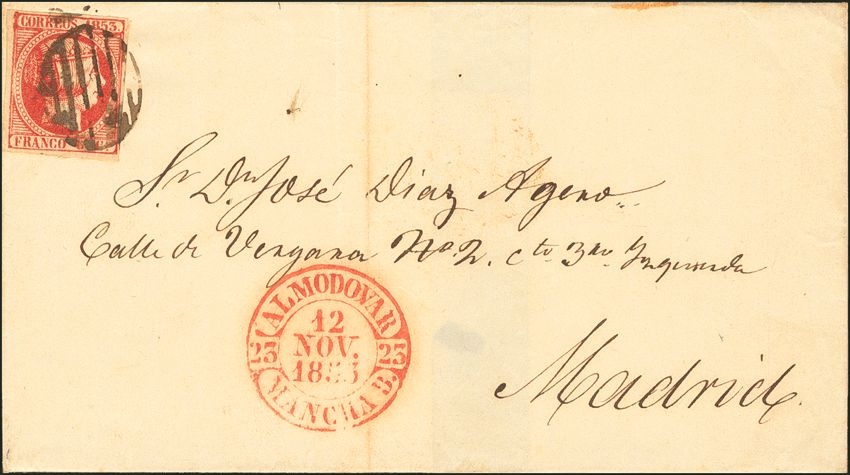 CORREOS 1853.
FRANCO
Sr Dn José Diaz Agero
Calle de Vergara No. 2. cto 3ro Izquierda
ALMODOVAR
12
NOV.
1853
23 23
MANCHA B.
Madrid.